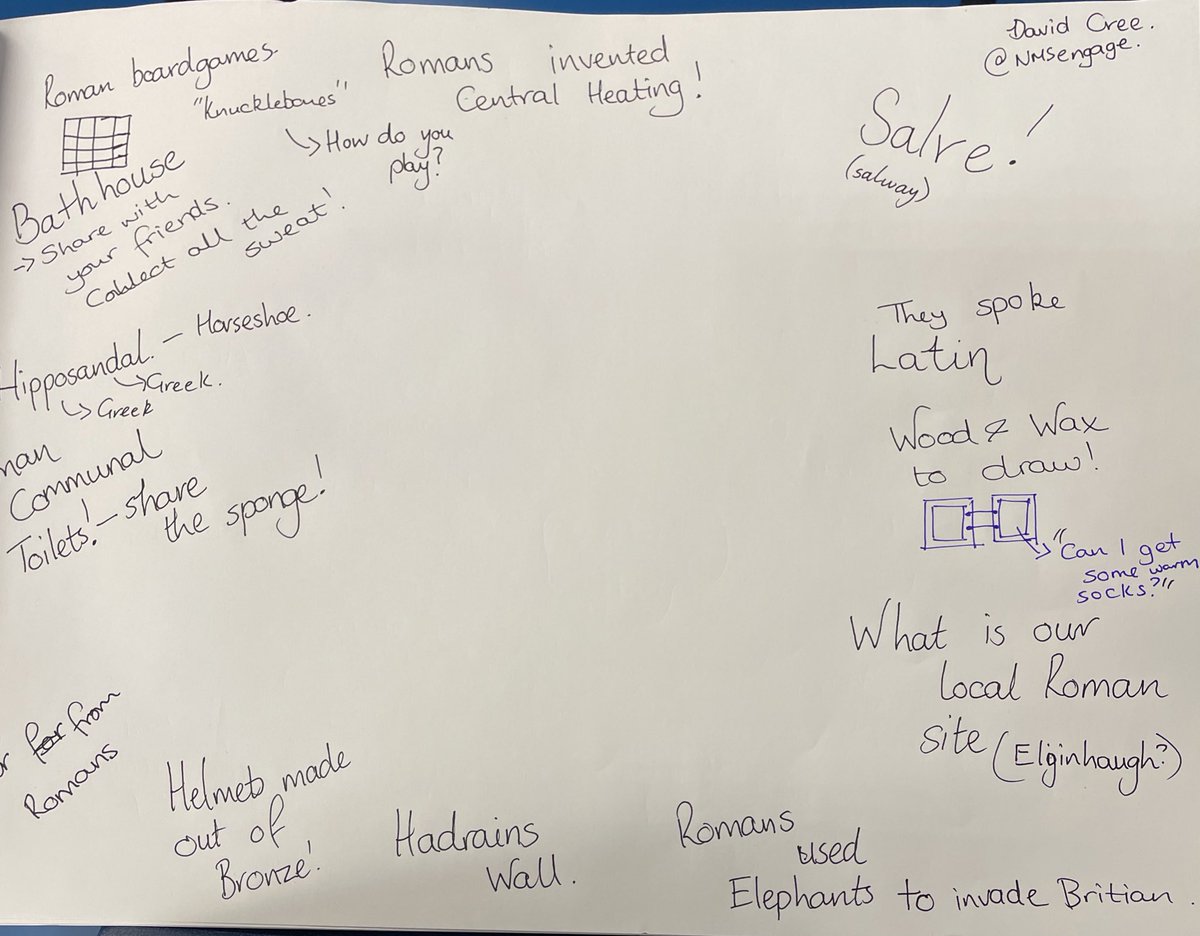 Roman boardgames.
"Knucklebones"
↳ How do you
play?
Romans invented
Central Heating!
David Cree.
@NMSengage.
Salve!
(salway)
Bathhouse
→ Share with
your friends.
Collect all the
sweat!
Hipposandal. – Horseshoe.
↳ Greek.
↳ Greek
man
Communal
Toilets! – share
the sponge!
They spoke
Latin
Wood & Wax
to draw!
"Can I get
some warm
socks?"
What is our
local Roman
site (Elginhaugh?)
from
Romans
Helmets made
out of
Bronze!
Hadrains
Wall.
Romans
used
Elephants to invade Britian.